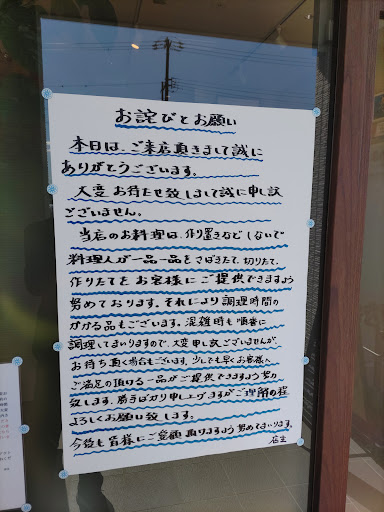 お詫びとお願い
本日は、ご来店頂きまして誠に
ありがとうございます。
大変お待たせ致しまして誠に申し訳
ございません。
当店のお料理は作り置きなどしないで
料理人が一品一品をさばきたて、切りたて、
作りたてをお客様にご提供できますよう
努めております。それにより調理時間の
かかる品もございます。混雑時も順番に
調理してまいりますので、大変申し訳ございませんが、
お待ち頂く場合もございます。少しでも早くお客様へ
ご満足の頂ける一品がご提供できますよう努力
致します。勝手ばかり申し上げますがご理解の程
よろしくお願い致します。
今後も皆様にご愛顧賜りますよう努めてまいります。
店主